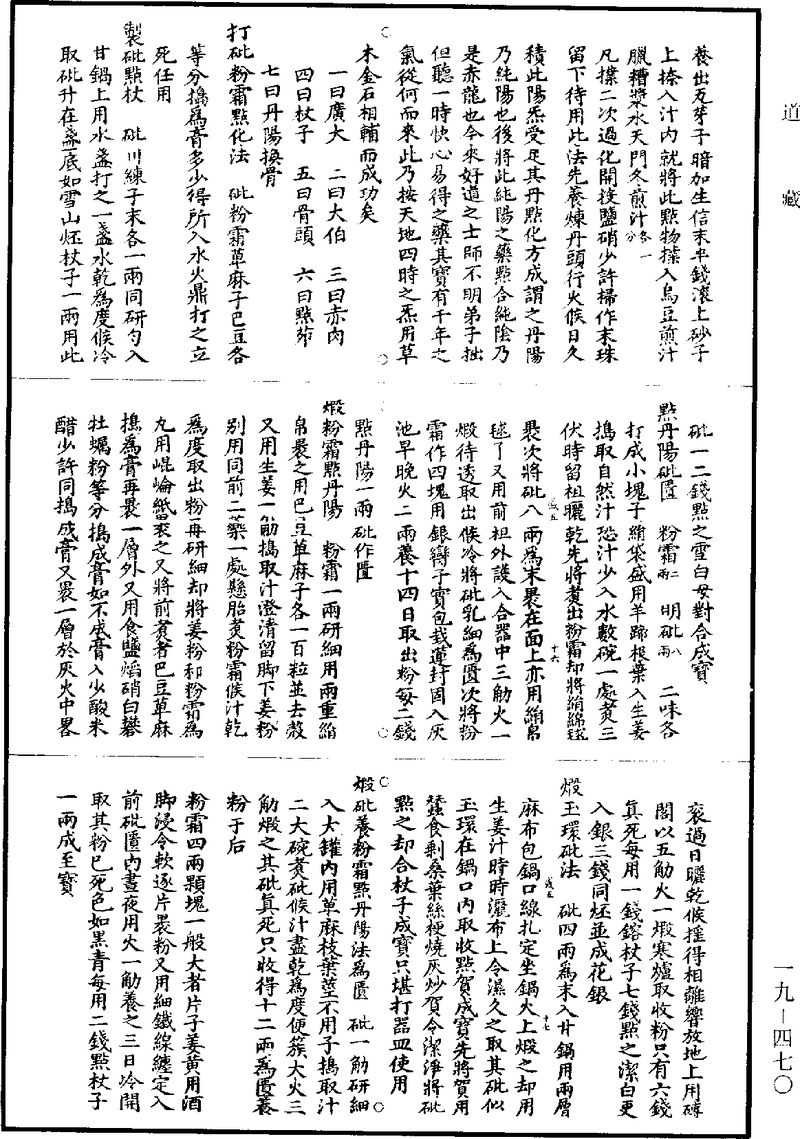 道藏
養出瓦芽子暗加生信末半錢滾上砂子
上捺入汁內就將此點物摖入烏豆煎汁
臘糟漿水天門冬煎汁各一分
凡摖二次過化開投鹽硝少許掃作末珠
留下待用此法先養煉丹頭行火候日久
積此陽炁受足其丹點化方成謂之丹陽
乃純陽也後將此純陽之藥點合純陰乃
是赤龍也今來好道之士師不明弟子拙
但聽一時快心易得之藥其寶有千年之
氣從何而來此乃按天地四時之炁用草
木金石相輔而成功矣
一曰廣大 二曰大伯 三曰赤肉
四曰杖子 五曰骨頭 六曰點茆
七曰丹陽換骨
打砒粉霜點化法 砒粉霜萆麻子巴豆各
等分搗為膏多少得所入水火鼎打之立
死任用
製砒點杖 砒川練子末各一兩同研勻入
甘鍋上用水盞打之一盞水乾為度候冷
取砒升在盞底如雪山炢杖子一兩用此
砒一二錢點之雪白母對合成寶
點丹陽砒匱 粉霜二兩 明砒八兩 二味各
打成小塊子絹袋盛用羊蹄根葉入生姜
搗取自然汁恐汁少入水數碗一處煮三
伏時留柤曬乾先將煮出粉霜却將絹綿毬
褁次將砒八兩為末褁在面上亦用絹帛
毬了又用前柤外護入合器中三觔火一
煅待透取出候冷將砒乳細為匱次將粉
霜作四塊用銀臠子實包鈛蓮封固入灰
池早晚火二兩養十四日取出粉每二錢
點丹陽一兩砒作匱
煅粉霜點丹陽 粉霜一兩研細用兩重絹
帛褁之用巴豆萆麻子各一百粒並去殼
又用生姜一觔搗取汁澄清留脚下姜粉
別用同前二藥一處懸胎煮粉霜候汁乾
為度取出粉再研細却將姜粉和粉霜為
丸用崐崘紙裹之又將前煮者巴豆萆麻
搗為膏再褁一層外又用食鹽熖硝白礬
牡蠣粉等分搗成膏如不成膏入少酸米
醋少許同搗成膏又褁一層於灰火中畧
衮過日曬乾候撞得相離響放地上用磚
閣以五觔火一煅寒爐取收粉只有六錢
真死每用一錢鎔杖子七錢點之潔白更
入銀三錢同炢並成花銀
煅玉環砒法 砒四兩為末入甘鍋用兩層
麻布包鍋口線扎定坐鍋火上煅之却用
生姜汁時時灑布上令濕久之取其砒似
玉環在鍋口內取收點賀成寶先將賀用
蠶食剩桑葉絲梗燒灰炒賀令潔淨將砒
點之却合杖子成寶只堪打器皿使用
煅砒養粉霜點丹陽法為匱 砒一觔研細
入大罐內用萆麻枝葉莖不用子搗取汁
二大碗煮砒候汁盡乾為度便簇大火三
觔煅之其砒真死只收得十二兩為匱養
粉于后
粉霜四兩顆塊一般大者片子姜黃用酒
脚浸令軟逐片褁粉又用細鐵線纏定入
前砒匱內晝夜用火一觔養之三日冷開
取其粉已死色如黑青每用二錢點杖子
一兩成至寶
一九－四七〇